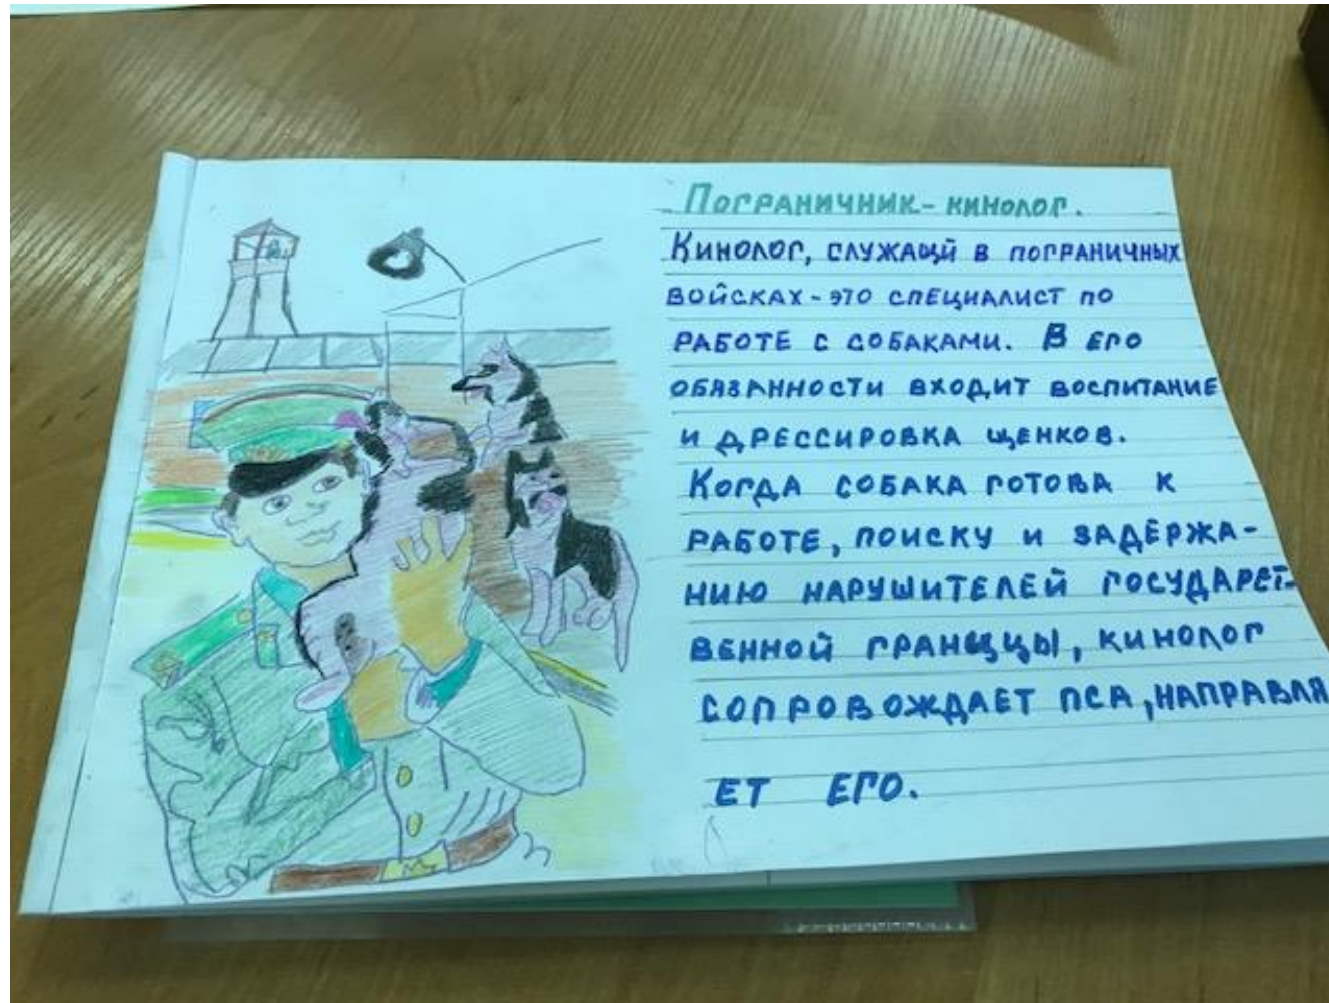 ПОГРАНИЧНИК- КИНОЛОГ.
КИНОЛОГ, СЛУЖАЩЙ В ПОГРАНИЧНЫХ
ВОЙСКАХ - ЭТО СПЕЦИАЛИСТ ПО
РАБОТЕ С СОБАКАМИ. В ЕГО
ОБЯЗАННОСТИ ВХОДИТ ВОСПИТАНИЕ
И ДРЕССИРОВКА ЩЕНКОВ.
КОГДА СОБАКА ГОТОВА К
РАБОТЕ, ПОИСКУ И ЗАДЕРЖА-
НИЮ НАРУШИТЕЛЕЙ ГОСУДАРСТ-
ВЕННОЙ ГРАНИЦЫ, КИНОЛОГ
СОПРОВОЖДАЕТ ПСА, НАПРАВЛЯ
ЕТ ЕГО.